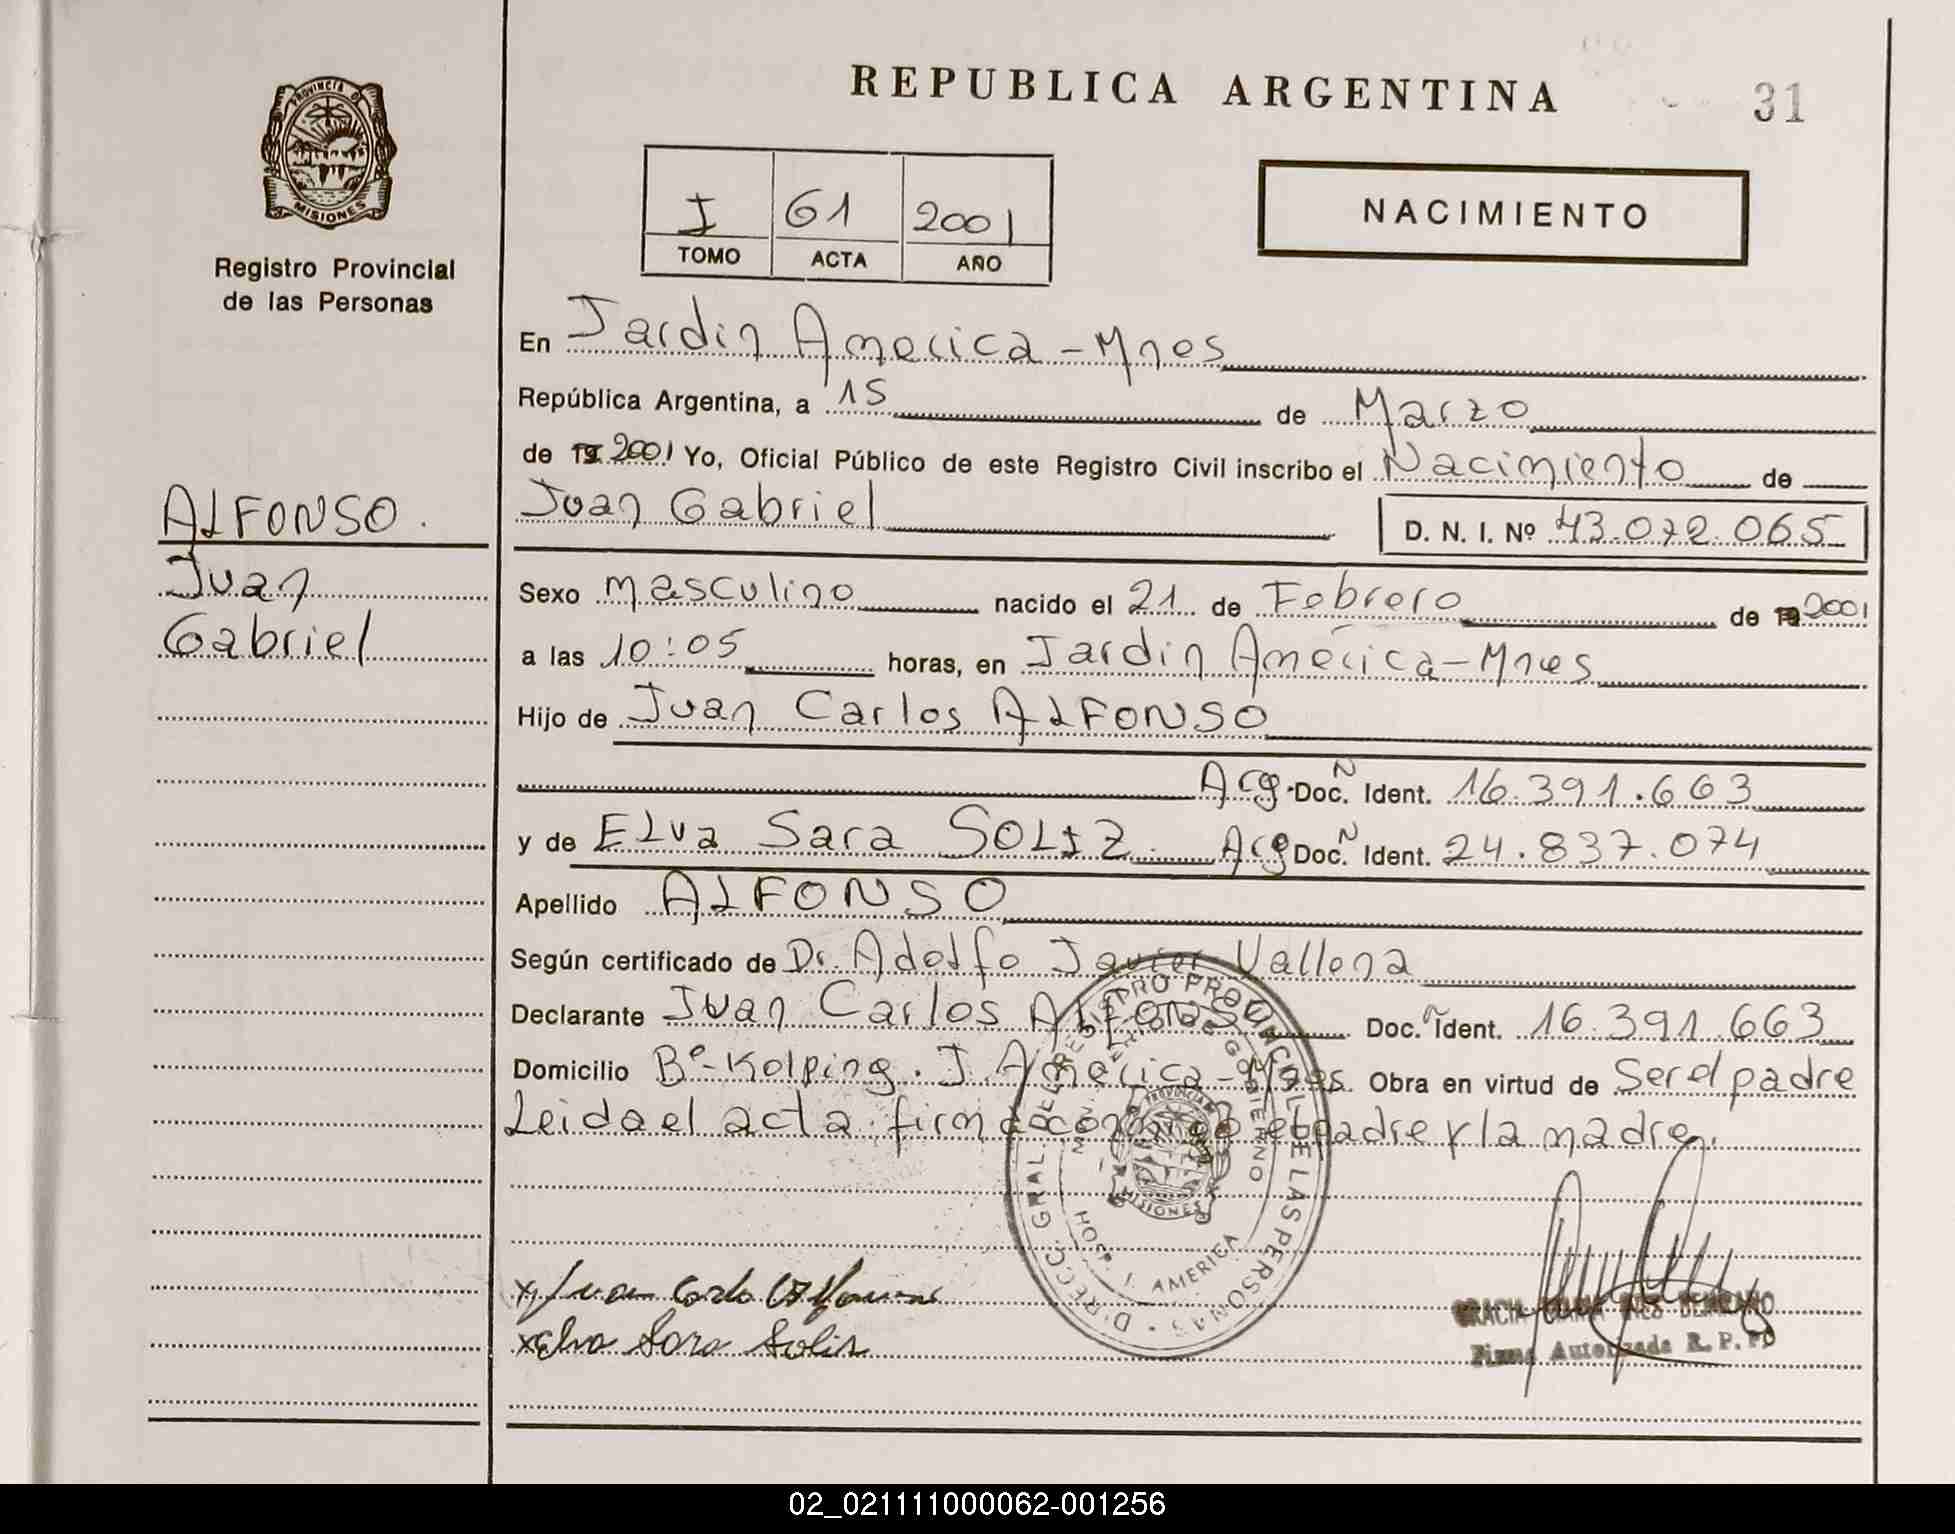 REPUBLICA ARGENTINA
31
PROVINCIA DE
MISIONES
Registro Provincial
de las Personas
I 61 2001
TOMO ACTA AÑO
NACIMIENTO
En Jardin America - Mnes
República Argentina, a 15 de Marzo
de 19 2001 Yo, Oficial Público de este Registro Civil inscribo el Nacimiento de
Juan Gabriel D. N. I. Nº 43.072.065
ALFONSO.
Juan
Gabriel
Sexo Masculino nacido el 21 de Febrero de 19 2001
a las 10:05 horas, en Jardin América - Mnes
Hijo de Juan Carlos ALFONSO
Arg. Doc. Ñ Ident. 16.391.663
y de Elva Sara SOLIZ. Arg Doc. Ñ Ident. 24.837.074
Apellido ALFONSO
Según certificado de Dr. Adolfo Javier Vallona
Declarante Juan Carlos ALFONSO Doc. Ñ Ident. 16.391.663
Domicilio Bº - Kolping. J. América - Mnes. Obra en virtud de Ser el padre
Leida el acta, firma conmigo el padre y la madre.
DIRECC. GRAL. DEL REGISTRO PROVINCIAL DE LAS PERSONAS
GOBIERNO
HOSP. J. AMERICA
PROVINCIA
MISIONES
x Juan Carlo Alfonso
x Elva Sara Solis
GRACIA MARIA INES
Firma Autorizada R. P. P.
02_021111000062-001256